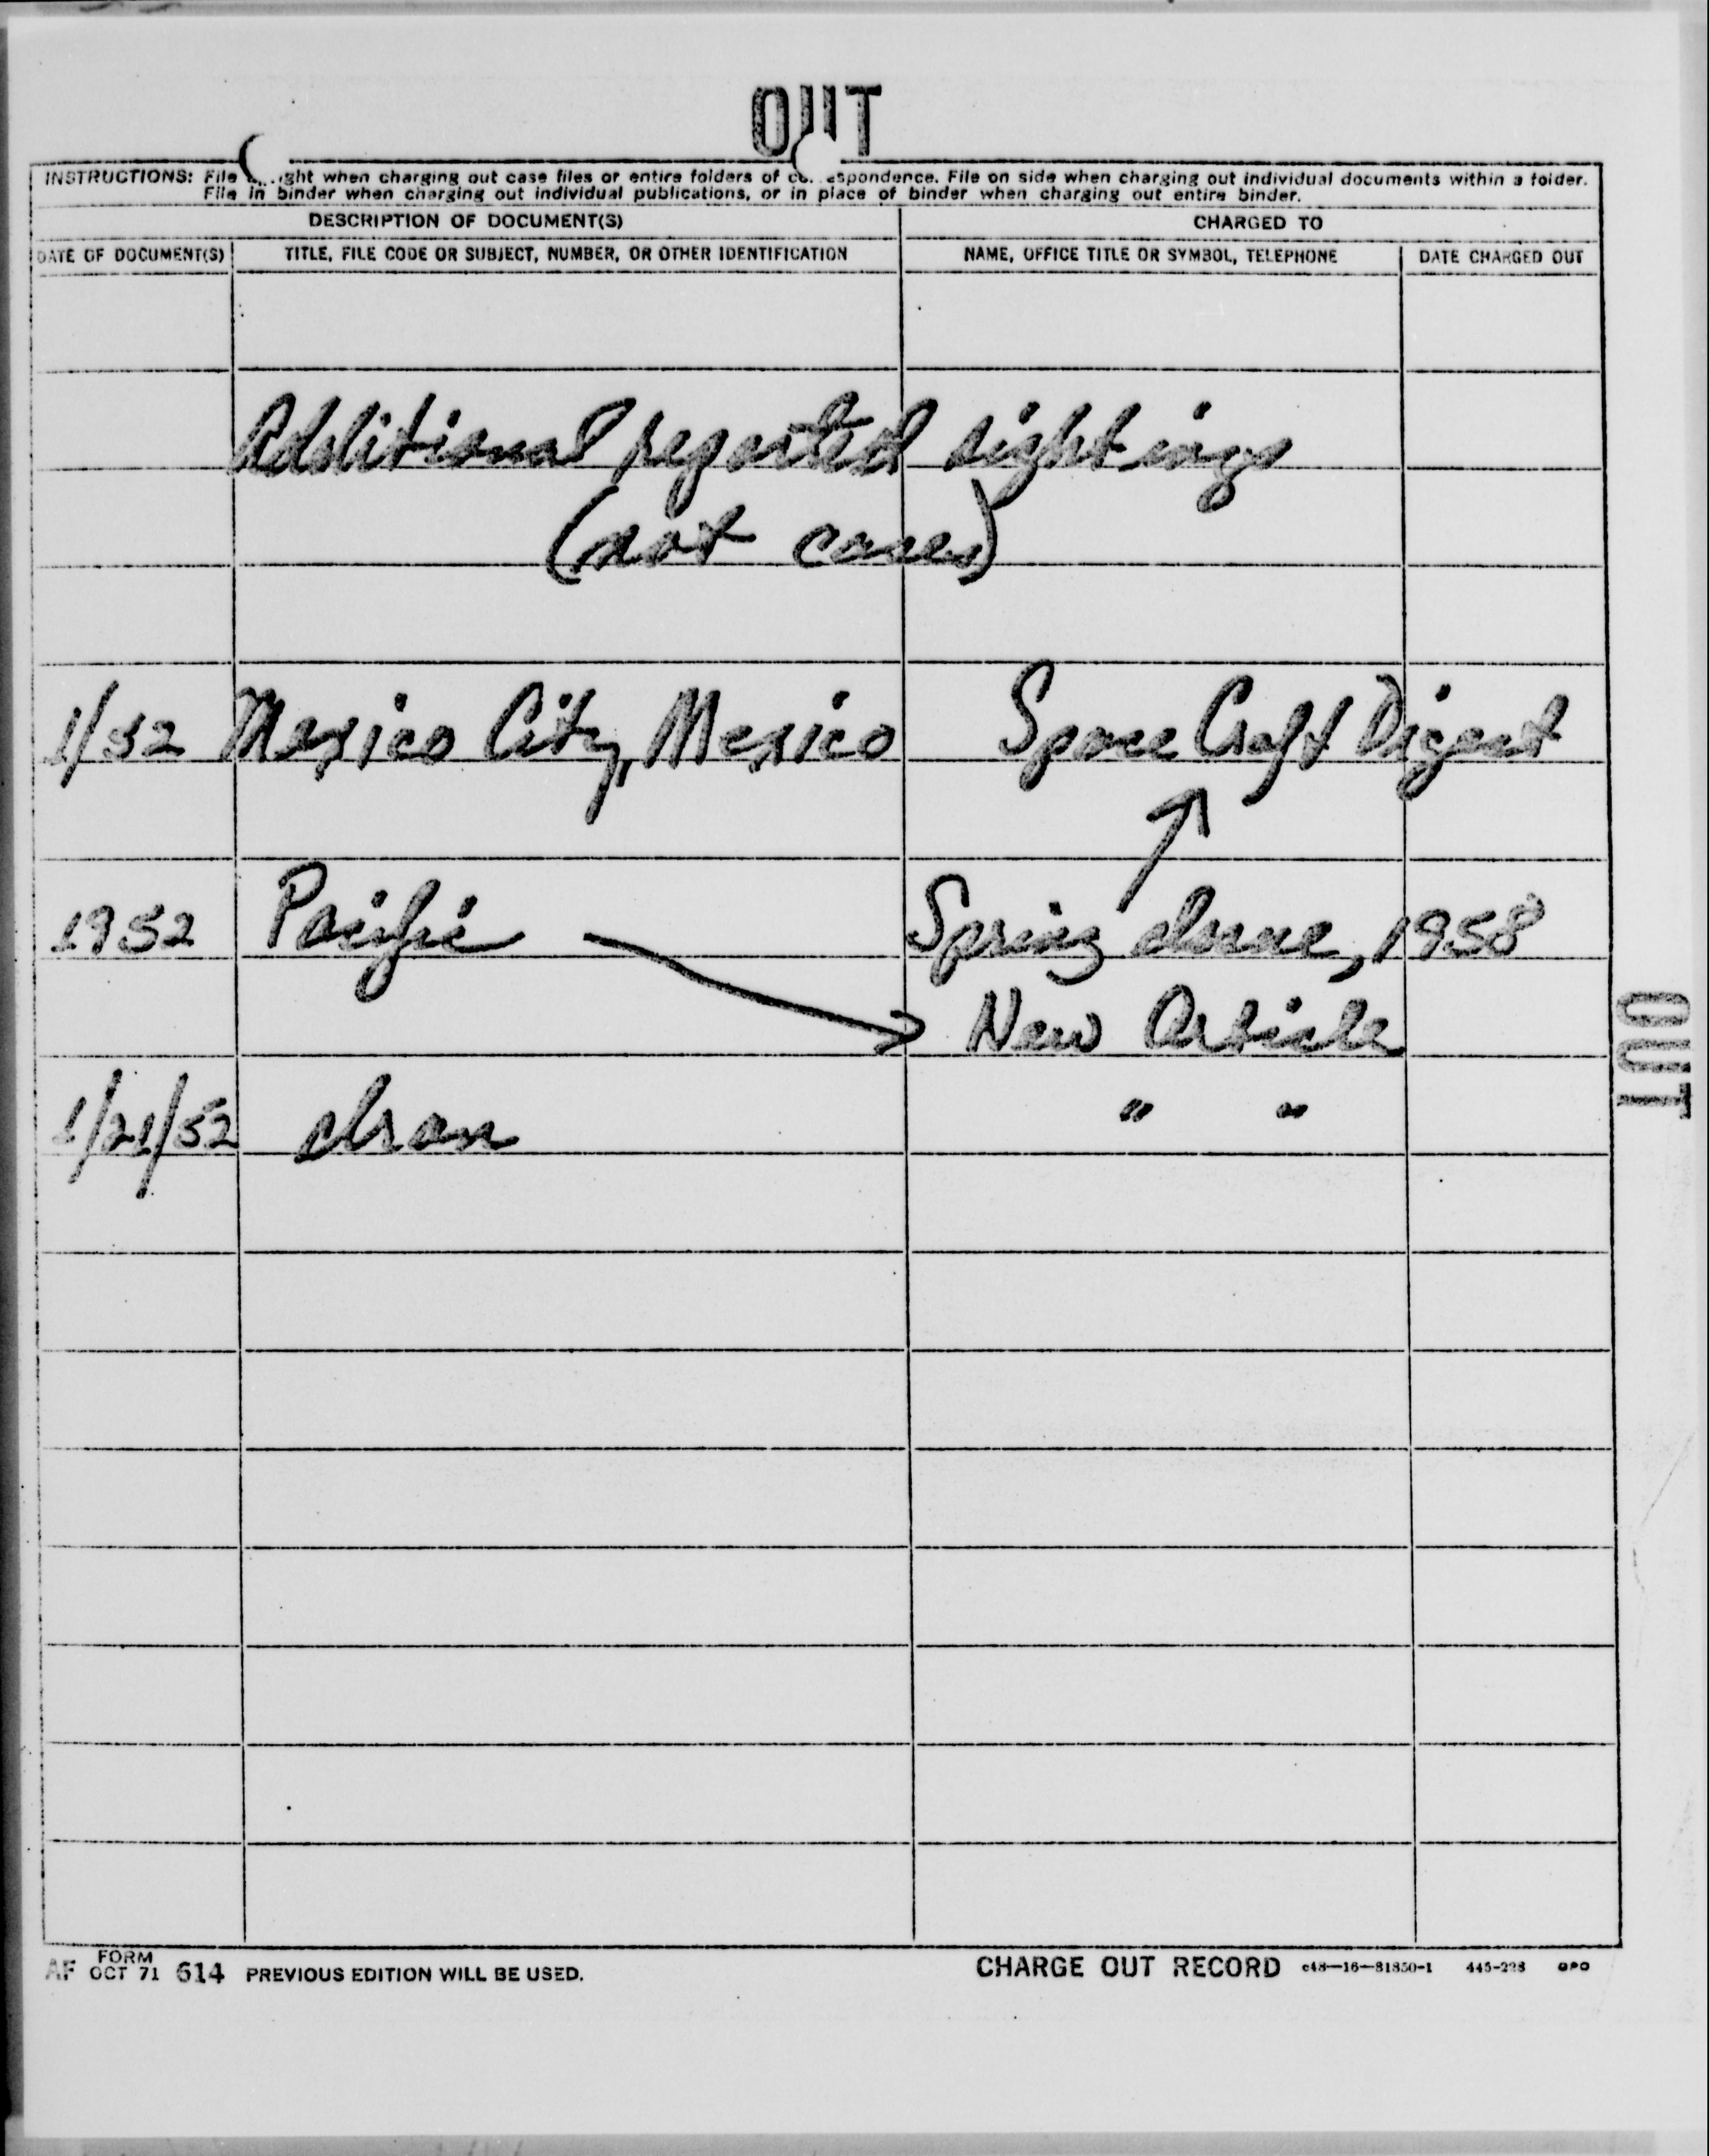 OUT
INSTRUCTIONS: File ight when charging out case files or entire folders of co espondence. File on side when charging out individual documents within a folder.
File in binder when charging out individual publications, or in place of binder when charging out entire binder.
DESCRIPTION OF DOCUMENT(S) CHARGED TO
DATE OF DOCUMENT(S) TITLE, FILE CODE OR SUBJECT, NUMBER, OR OTHER IDENTIFICATION NAME, OFFICE TITLE OR SYMBOL, TELEPHONE DATE CHARGED OUT
Additional reported sightings
(not cases)
1/52 Mexico City, Mexico Space Craft Digest
1952 Pacific Spring Issue, 1958
New Article
1/21/52 Iran " "
OUT
AF FORM OCT 71 614 PREVIOUS EDITION WILL BE USED. CHARGE OUT RECORD c48—16—81850-1 445-228 GPO